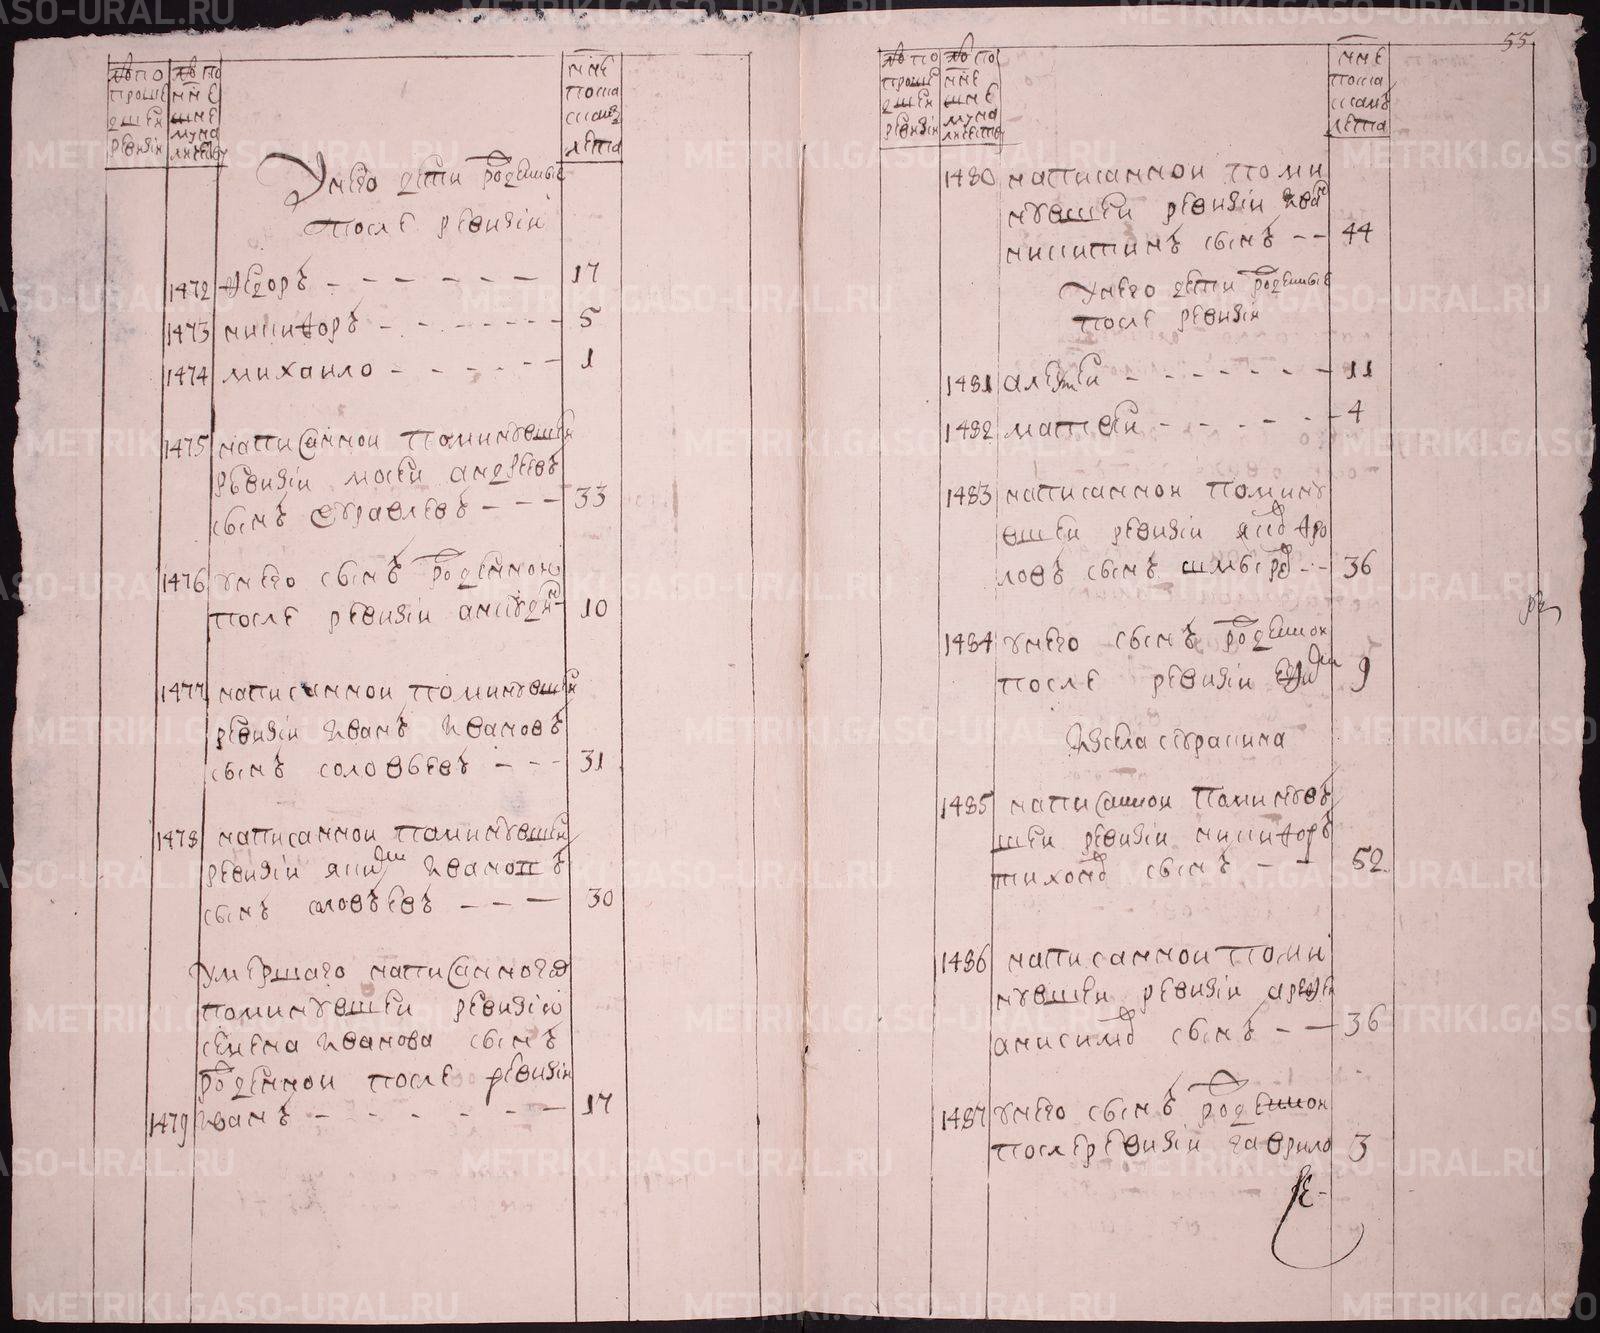 № по
проше
дшеи
ревизіи
№ по
ннѣ
шне
му на
личеству
ннѣ
по ска
скамъ
лета
У него дети рожденные
после ревизіи
1472 Федоръ 17
1473 никифоръ 5
1474 михаило 1
1475 написаннои поминувшеи
ревизіи мосеи андреевъ
сынъ журавлевъ 33
1476 у него сынъ рожденнои
после ревизіи 10
1477 написаннои поминувшеи
ревизіи Иванъ Ивановъ
сынъ соловьевъ 31
1478 написаннои поминувшеи
ревизіи Ивановъ
сынъ соловьевъ 30
умершаго написанного
поминувшеи ревизіи
семена Иванова сынъ
рожденнои после ревизіи
1479 Иванъ 17
55
№ по
проше
дшеи
ревизіи
№ по
ннѣ
шне
му на
личеству
ннѣ
по ска
скамъ
лета
1480 написаннои поми
нувшеи ревизіи Иванъ
никитинъ сынъ 44
У него дети рожденные
после ревизіи
1481 алексеи 11
1482 матвеи 4
1483 написаннои помину
вшеи ревизіи яковъ фро
ловъ сынъ 36
1484 у него сынъ рожденнои
после ревизіи 9
Изсела сугранина
1485 написаннои поминув
шеи ревизіи никифоръ
тихоновъ сынъ 52
1486 написаннои поми
нувшеи ревизіи
анисимовъ сынъ 36
1487 у него сынъ рожденнои
после ревизіи гаврило 3
METRIKI.GASO-URAL.RU